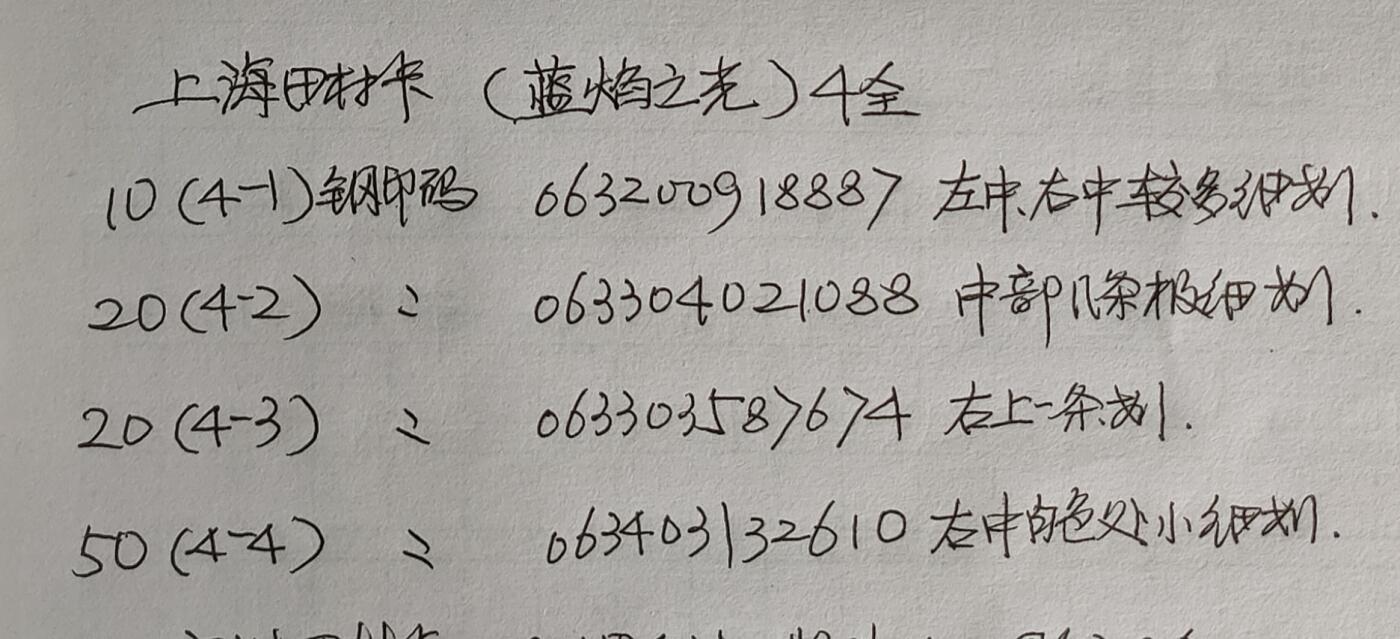 上海田村卡（蓝焰之光）4全
10(4-1)钢印码 063200918887 左中、右中较多细划.
20(4-2) 〃 063304021088 中部几条极细划.
20(4-3) 〃 063303587674 右上一条划.
50(4-4) 〃 063403132610 右中白色处小细划.